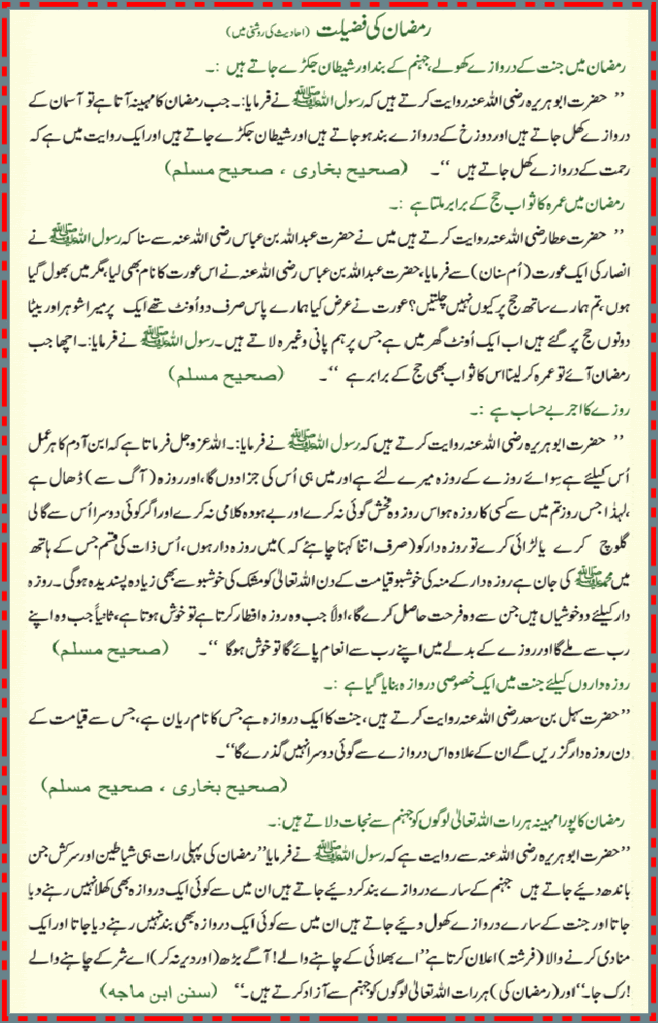 رمضان کی فضیلت (احادیث کی روشنی میں)
رمضان میں جنت کے دروازے کھولے، جہنم کے بند اور شیطان جکڑے جاتے ہیں :۔
’’ حضرت ابو ہریرہ رضی اللہ عنہ روایت کرتے ہیں کہ رسول اللہ ﷺ نے فرمایا:۔ جب رمضان کا مہینہ آتا ہے تو آسمان کے
دروازے کھل جاتے ہیں اور دوزخ کے دروازے بند ہو جاتے ہیں اور شیطان جکڑے جاتے ہیں اور ایک روایت میں ہے کہ
رحمت کے دروازے کھل جاتے ہیں ‘‘۔ (صحیح بخاری ، صحیح مسلم)
رمضان میں عمرہ کا ثواب حج کے برابر ملتا ہے :۔
’’ حضرت عطار رضی اللہ عنہ روایت کرتے ہیں میں نے حضرت عبداللہ بن عباس رضی اللہ عنہ سے سنا کہ رسول اللہ ﷺ نے
انصار کی ایک عورت (اُم سنان) سے فرمایا، حضرت عبداللہ بن عباس رضی اللہ عنہ نے اس عورت کا نام بھی لیا، مگر میں بھول گیا
ہوں، تم ہمارے ساتھ حج پر کیوں نہیں چلتیں؟ عورت نے عرض کیا ہمارے پاس صرف دو اُونٹ تھے ایک پر میرا شوہر اور بیٹا
دونوں حج پر گئے ہیں اب ایک اُونٹ گھر میں ہے جس پر ہم پانی وغیرہ لاتے ہیں۔ رسول اللہ ﷺ نے فرمایا:۔ اچھا جب
رمضان آئے تو عمرہ کر لینا اس کا ثواب بھی حج کے برابر ہے ‘‘۔ (صحیح مسلم)
روزے کا اجر بے حساب ہے :۔
’’ حضرت ابو ہریرہ رضی اللہ عنہ روایت کرتے ہیں کہ رسول اللہ ﷺ نے فرمایا:۔ اللہ عزوجل فرماتا ہے کہ ابن آدم کا ہر عمل
اُس کیلئے ہے سوائے روزے کے روزہ میرے لئے ہے اور میں ہی اُس کی جزا دوں گا، اور روزہ (آگ سے) ڈھال ہے
،لہٰذا جس روز تم میں سے کسی کا روزہ ہو اس روز وہ فحش گوئی نہ کرے اور بے ہودہ کلامی نہ کرے اور اگر کوئی دوسرا اُس سے گالی
گلوچ کرے یا لڑائی کرے تو روزہ دار کو (صرف اتنا کہنا چاہئے کہ) میں روزہ دار ہوں، اُس ذات کی قسم جس کے ہاتھ
میں محمد ﷺ کی جان ہے روزہ دار کے منہ کی خوشبو قیامت کے دن اللہ تعالیٰ کو مشک کی خوشبو سے بھی زیادہ پسندیدہ ہوگی۔ روزہ
دار کیلئے دو خوشیاں ہیں جن سے وہ فرحت حاصل کرے گا، اولاً جب وہ روزہ افطار کرتا ہے تو خوش ہوتا ہے، ثانیاً جب وہ اپنے
رب سے ملے گا اور روزے کے بدلے میں اپنے رب سے انعام پائے گا تو خوش ہوگا ‘‘۔ (صحیح مسلم)
روزہ داروں کیلئے جنت میں ایک خصوصی دروازہ بنایا گیا ہے :۔
’’حضرت سہل بن سعد رضی اللہ عنہ روایت کرتے ہیں، جنت کا ایک دروازہ ہے جس کا نام ریان ہے، جس سے قیامت کے
دن روزہ دار گزریں گے ان کے علاوہ اس دروازے سے کوئی دوسرا نہیں گذرے گا‘‘۔
(صحیح بخاری ، صحیح مسلم)
رمضان کا پورا مہینہ ہر رات اللہ تعالیٰ لوگوں کو جہنم سے نجات دلاتے ہیں:۔
’’حضرت ابو ہریرہ رضی اللہ عنہ سے روایت ہے کہ رسول اللہ ﷺ نے فرمایا ’’رمضان کی پہلی رات ہی شیاطین اور سرکش جن
باندھ دیئے جاتے ہیں جہنم کے سارے دروازے بند کر دیئے جاتے ہیں ان میں سے کوئی ایک دروازہ بھی کھلا نہیں رہنے دیا
جاتا اور جنت کے سارے دروازے کھول دیئے جاتے ہیں ان میں سے کوئی ایک دروازہ بھی بند نہیں رہنے دیا جاتا اور ایک
منادی کرنے والا (فرشتہ) اعلان کرتا ہے ’’اے بھلائی کے چاہنے والے! آگے بڑھ (اور دیر نہ کر) اے شر کے چاہنے والے
!رک جا۔‘‘ اور (رمضان کی) ہر رات اللہ تعالیٰ لوگوں کو جہنم سے آزاد کرتے ہیں۔‘‘ (سنن ابن ماجہ)